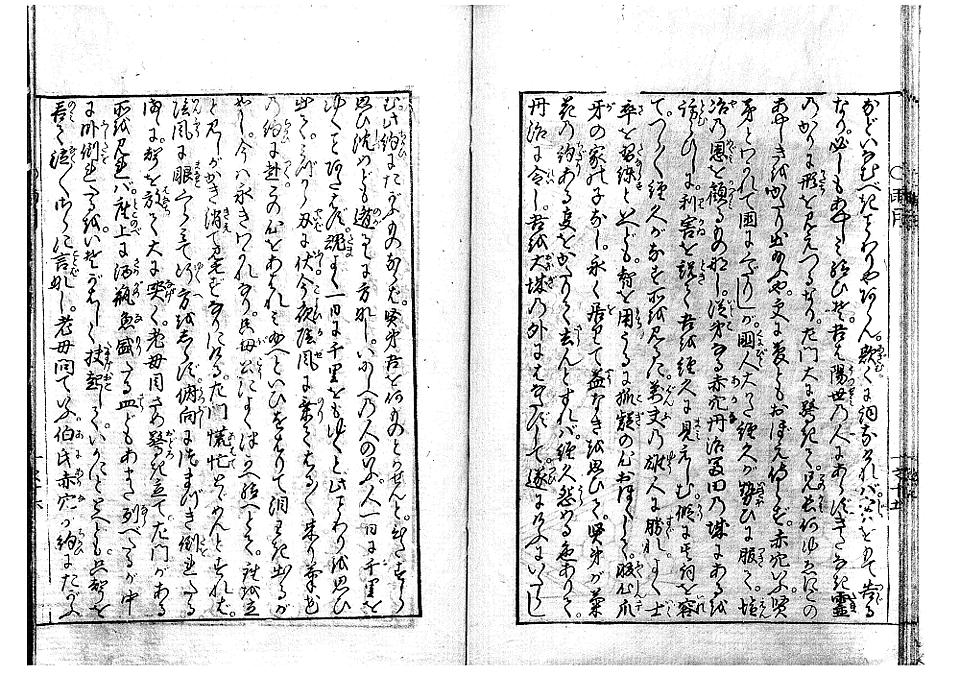 などいなむべきことわりやあらん。歎くに詞なければ。実をもて告る
なり。必しもあやしみ給ひそ。吾は陽世の人にあらず。きたなき霊
のかりに形を見えつるなり。左門大に驚きて。兄長何ゆゑにこの
あやしきをかたり出給ふや。更に夢ともおぼえ侍らず。赤穴いふ。賢
弟とわかれて国にくだりしが。国人大かた経久が勢ひに服て。塩
冶の恩を顧るもの那し。従弟なる赤穴丹治冨田の城にあるを
訪らひしに。利害を説て吾を経久に見えしむ。仮に其詞を容
て。つら〱経久がなす所を見るに。万夫の雄人に勝れ。よく士
卒を習練といへども。智を用うるに狐疑の心おほくして。腹心爪
牙の家の子なし。永く居りて益なきを思ひて。賢弟が菊
花の約ある事をかたりて去んとすれば。経久怨める色ありて。
丹治に令し。吾を大城の外にはなたずして。遂にけふにいたらし
む。此約にたがふものならば。賢弟吾を何ものとかせんと。ひたすら
思ひ沈めども遁るゝに方なし。いにしへの人のいふ。人一日に千里を
ゆくことあたはず。魂よく一日に千里をもゆくと。此ことわりを思ひ
出て。みづから刃に伏。今夜陰風に乗てはる〲来り菊花
の約に赴。この心をあはれみ給へといひをはりて泪わき出るが
如し。今は永きわかれなり。只母公によくつかへ給へとて。座を立
と見しがかき消て見えずなりにける。左門慌忙とゞめんとすれば。
陰風に眼くらみて行方をしらず。俯向につまづき倒れたる
まゝに。声を放て大に哭く。老母目さめ驚き立て。左門がある
所を見れば。座上に酒瓶魚盛たる皿どもあまた列べたるが中
に臥倒れたるを。いそがはしく扶起して。いかにととへども。只声を
呑て泣〱さらに言なし。老母問ていふ。伯氏赤穴が約にたがふ